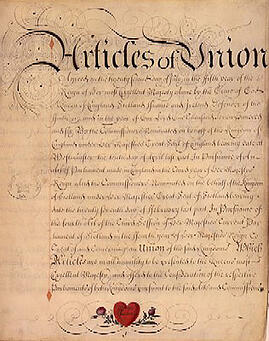 Articles of Union
Agreed on the twenty Second day of July in the fifth year of the
Reign of Her most Excellent Majesty Anne by the Grace of God
Queen of England Scotland France and Ireland Defender of the
Faith &c and in the year of Our Lord One thousand Seven hundred
and six By the Commissioners Nominated on behalf of the Kingdom of
England under Her Majestys Great Seal of England bearing date at
Westminster the tenth day of April last past In Pursuance of
Parliament made in England in the third year of Her Majestys
Reign and the Commissioners Nominated on the behalf of the Kingdom
of Scotland under Her Majestys Great Seal of Scotland bearing
date the twenty seventh day of February last past In Pursuance of
the fourth Act of the third Session of Her Majestys Current Par
liament of Scotland in the
of and Concerning an Union of the said Kingdoms Which
Articles are most humbly to be presented to the Queens most
Excellent Majesty and to the Consideration of the respective
Parliaments of both Kingdoms pursuant to the said Acts and Commissions